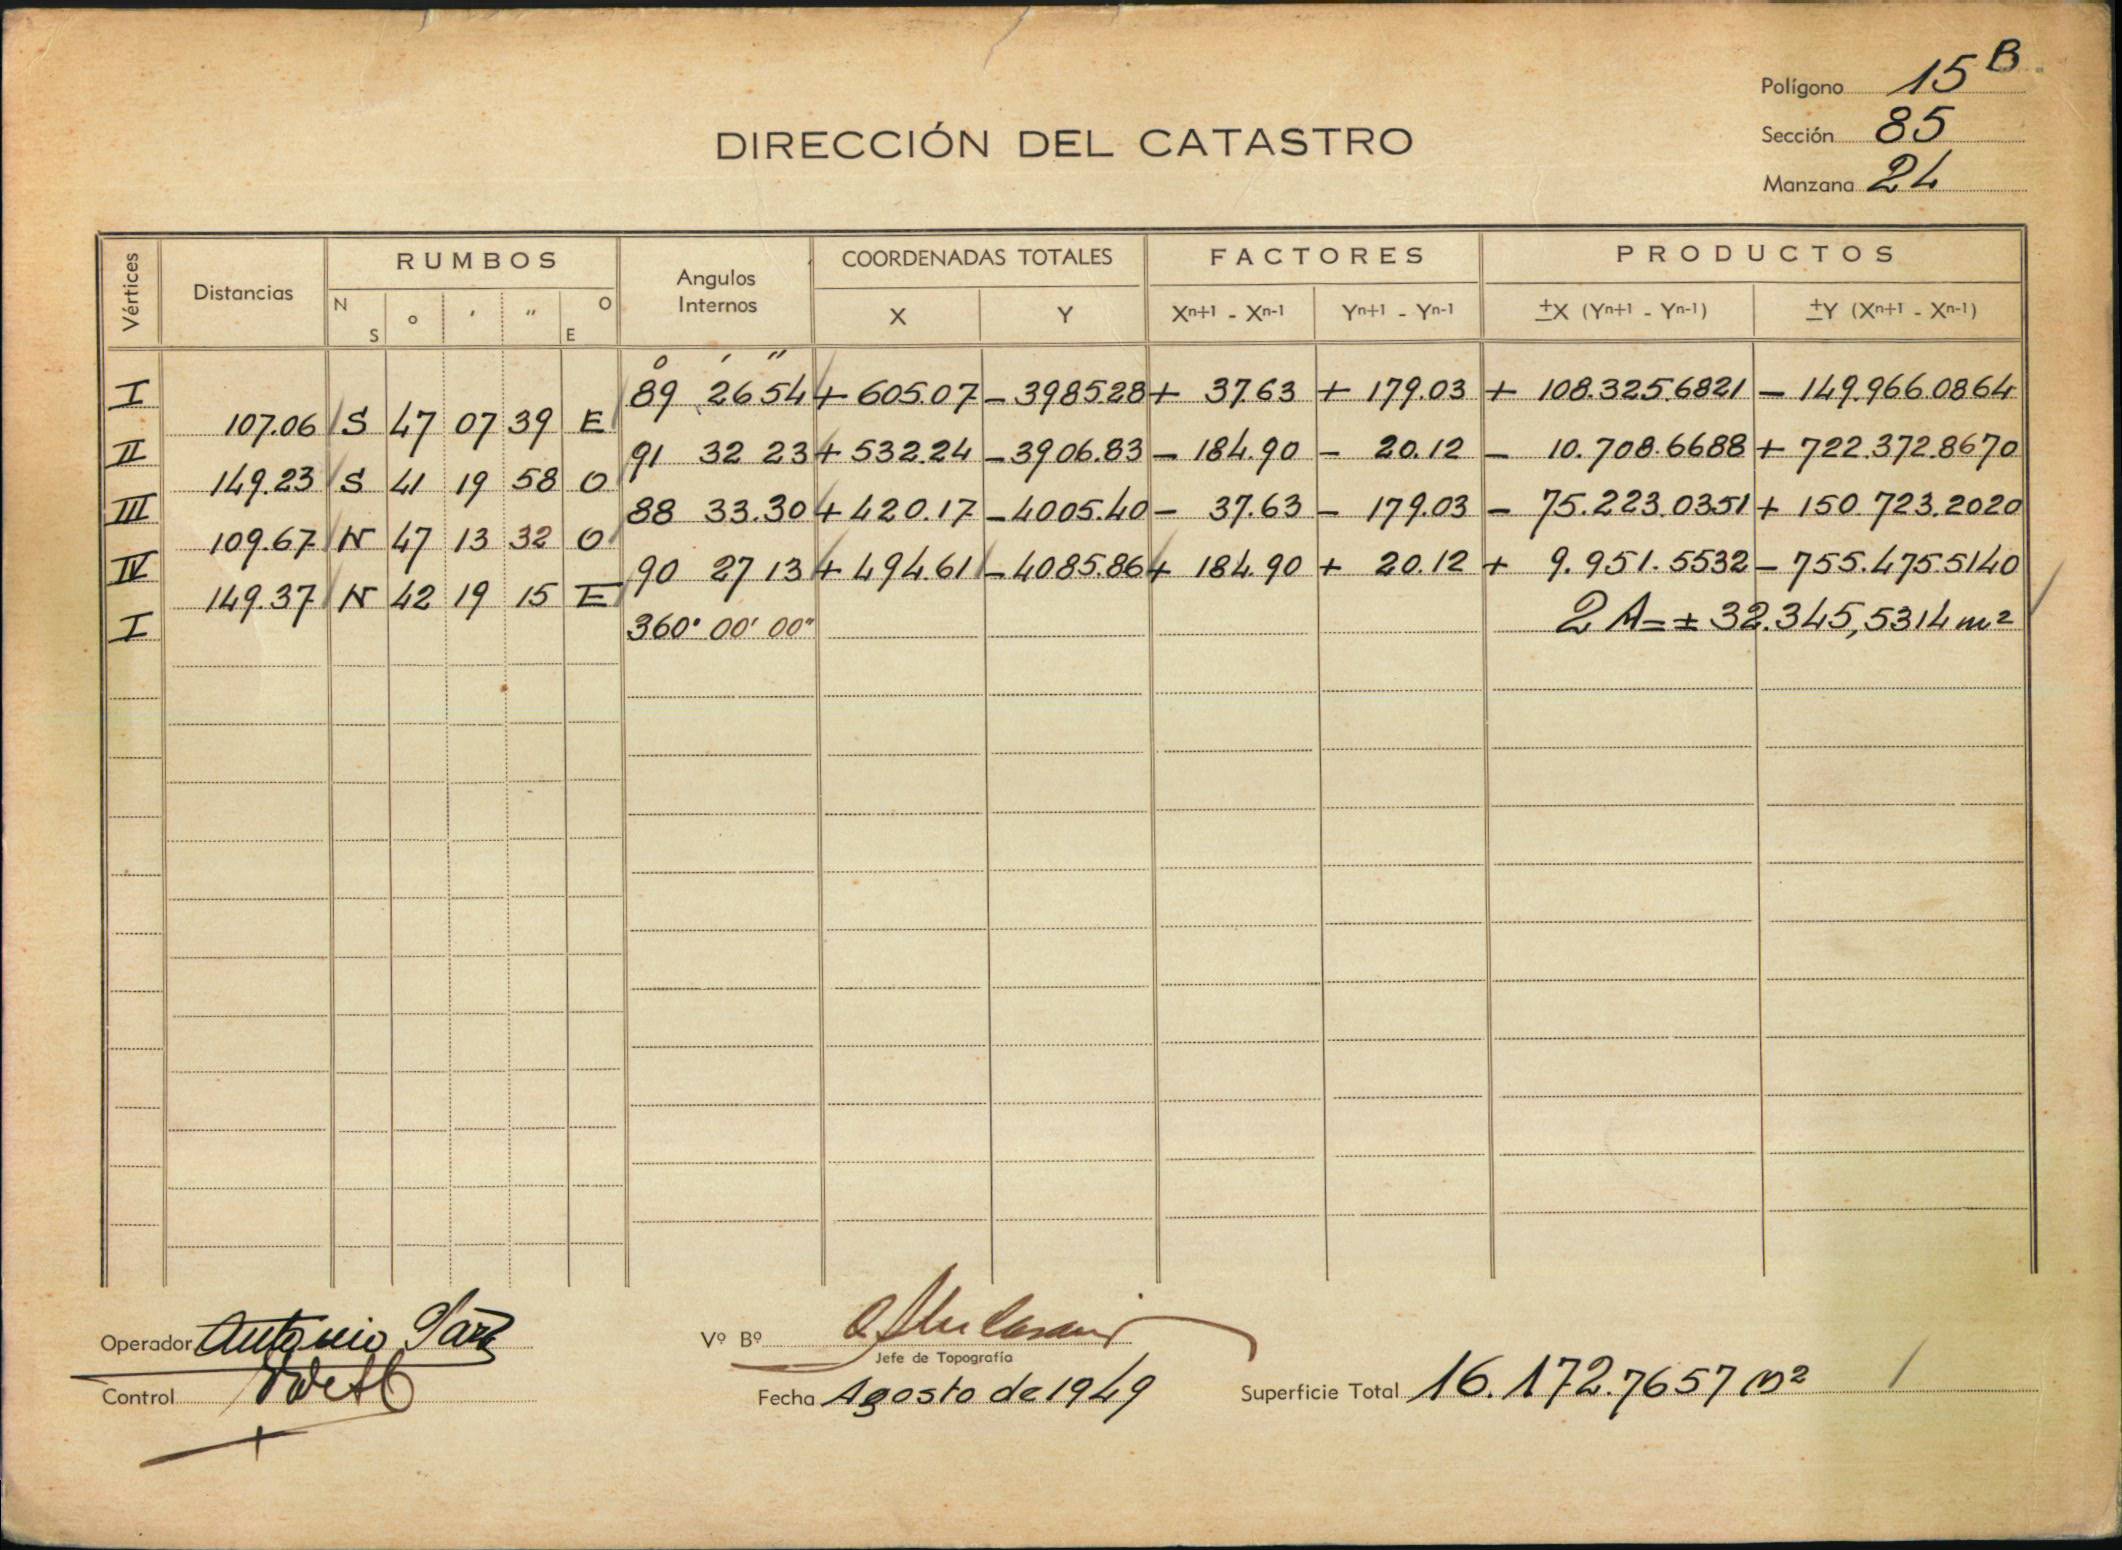 Polígono 15 B
DIRECCIÓN DEL CATASTRO
Sección 85
Manzana 24
Vértices Distancias RUMBOS Angulos Internos COORDENADAS TOTALES FACTORES PRODUCTOS
N S ° ' " O E X Y Xn+1 - Xn-1 Yn+1 - Yn-1 ±X (Yn+1 - Yn-1) ±Y (Xn+1 - Xn-1)
° ' "
I 89 26 54 + 605.07 - 3985.28 + 37.63 + 179.03 + 108.325.6821 - 149.966.0864
107.06 S 47 07 39 E
II 91 32 23 + 532.24 - 3906.83 - 184.90 - 20.12 - 10.708.6688 + 722.372.8670
149.23 S 41 19 58 O
III 88 33.30 + 420.17 - 4005.40 - 37.63 - 179.03 - 75.223.0351 + 150.723.2020
109.67 N 47 13 32 O
IV 90 27 13 + 494.61 - 4085.86 + 184.90 + 20.12 + 9.951.5532 - 755.475.5140
149.37 N 42 19 15 E
I 360° 00' 00" 2 A = ± 32.345,5314 m²
Operador Antonio
Vº Bº
Jefe de Topografía
Control
Fecha Agosto de 1949
Superficie Total 16.172.7657 m²